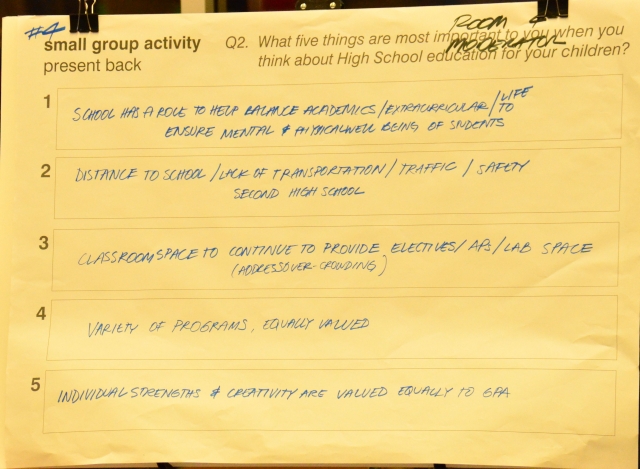 #4
ROOM 4
MODERATOR
small group activity
present back
Q2. What five things are most important to you when you
think about High School education for your children?
1
SCHOOL HAS A ROLE TO HELP BALANCE ACADEMICS/EXTRACURRICULAR/LIFE TO
ENSURE MENTAL & PHYSICAL WELL BEING OF STUDENTS
2
DISTANCE TO SCHOOL/LACK OF TRANSPORTATION/TRAFFIC/SAFETY
SECOND HIGH SCHOOL
3
CLASSROOM SPACE TO CONTINUE TO PROVIDE ELECTIVES/APs/LAB SPACE
(ADDRESS OVER-CROWDING)
4
VARIETY OF PROGRAMS, EQUALLY VALUED
5
INDIVIDUAL STRENGTHS & CREATIVITY ARE VALUED EQUALLY TO GPA